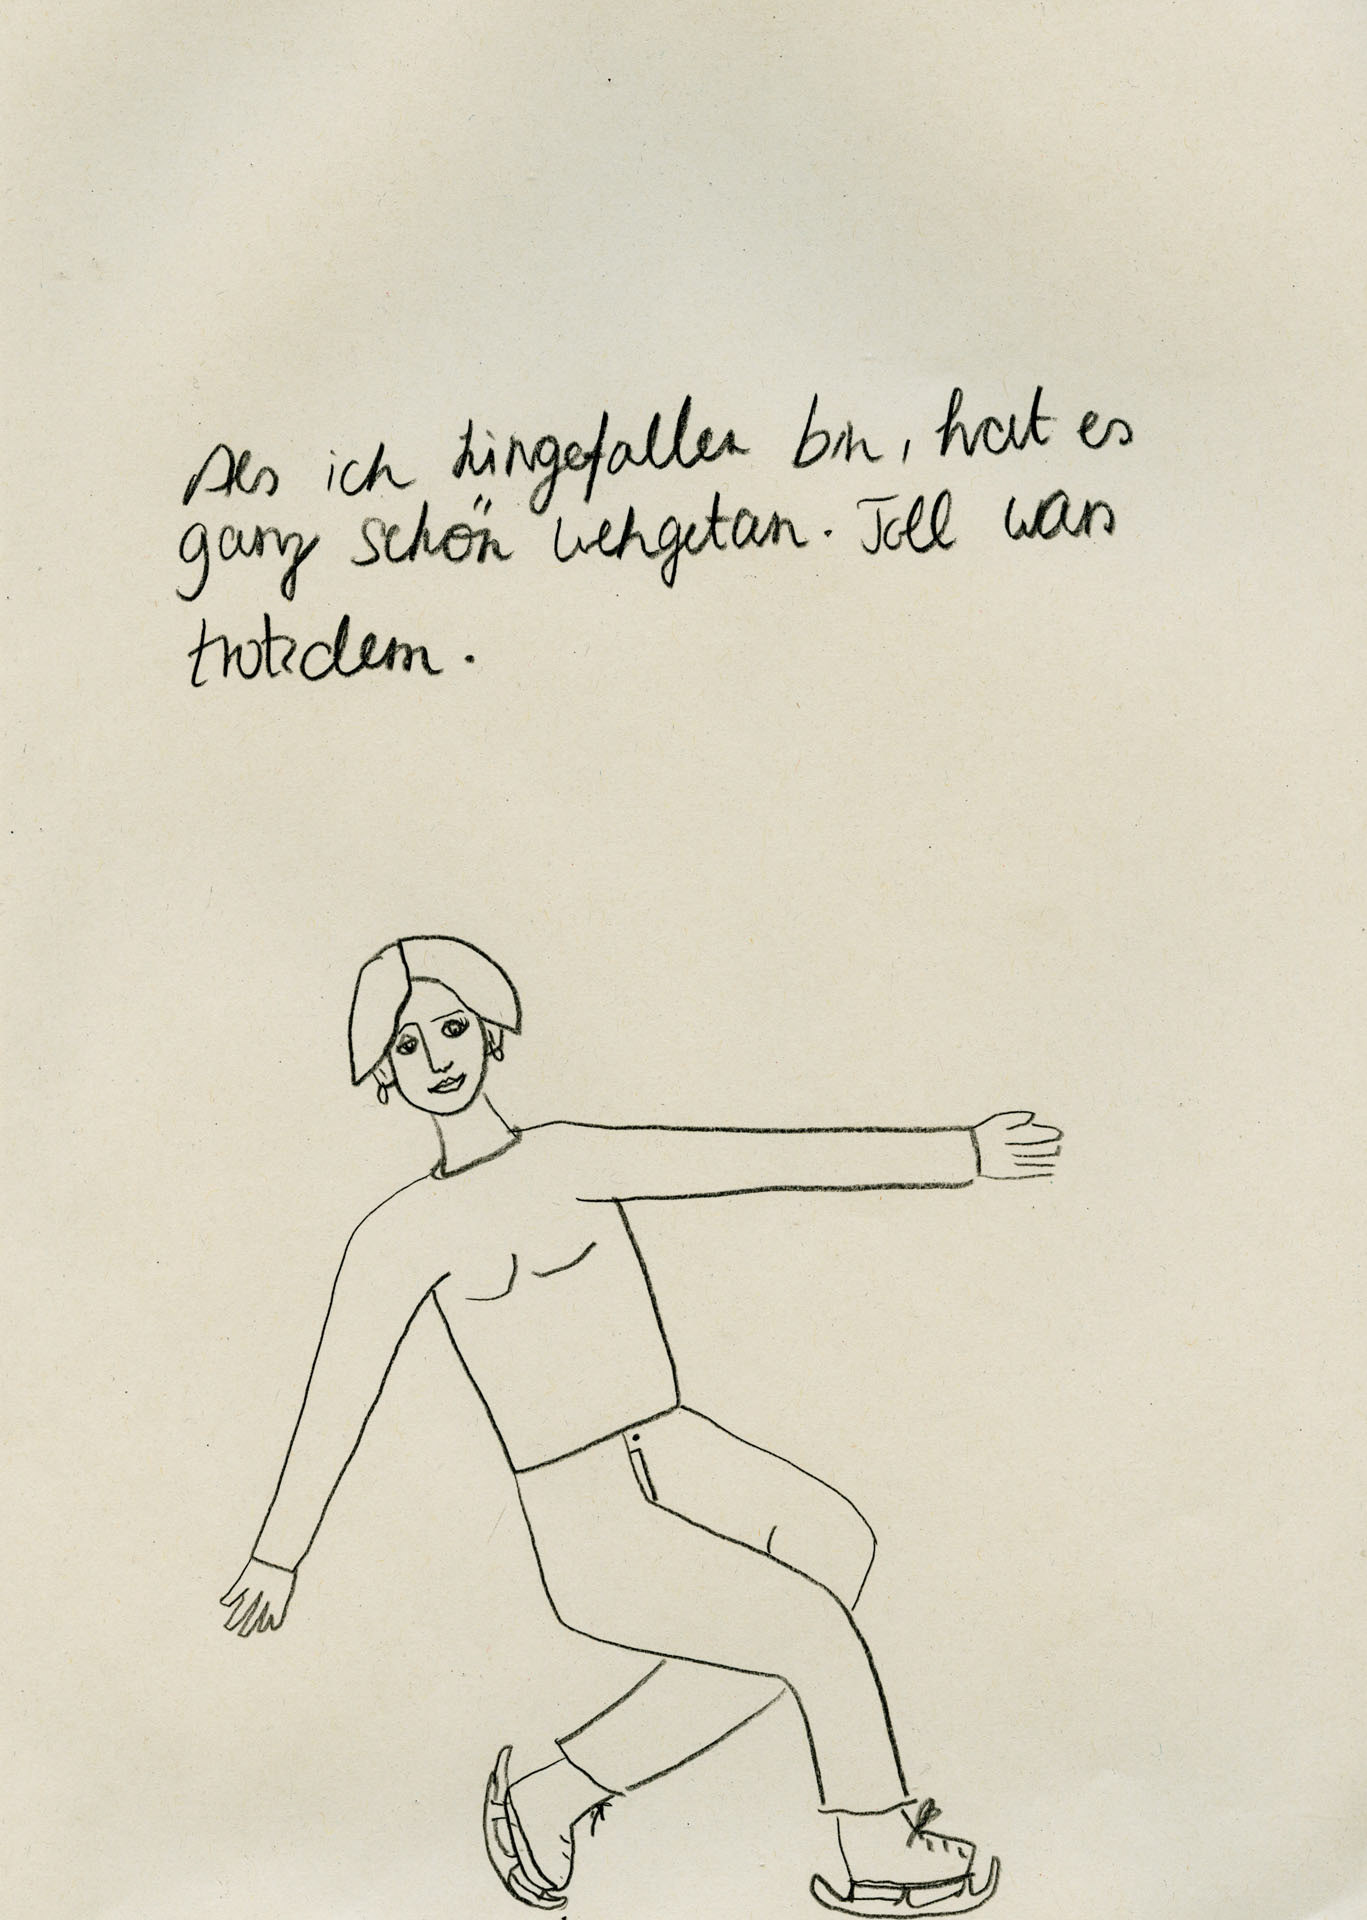 Als ich hingefallen bin, hat es
ganz schön wehgetan. Toll wars
trotzdem.